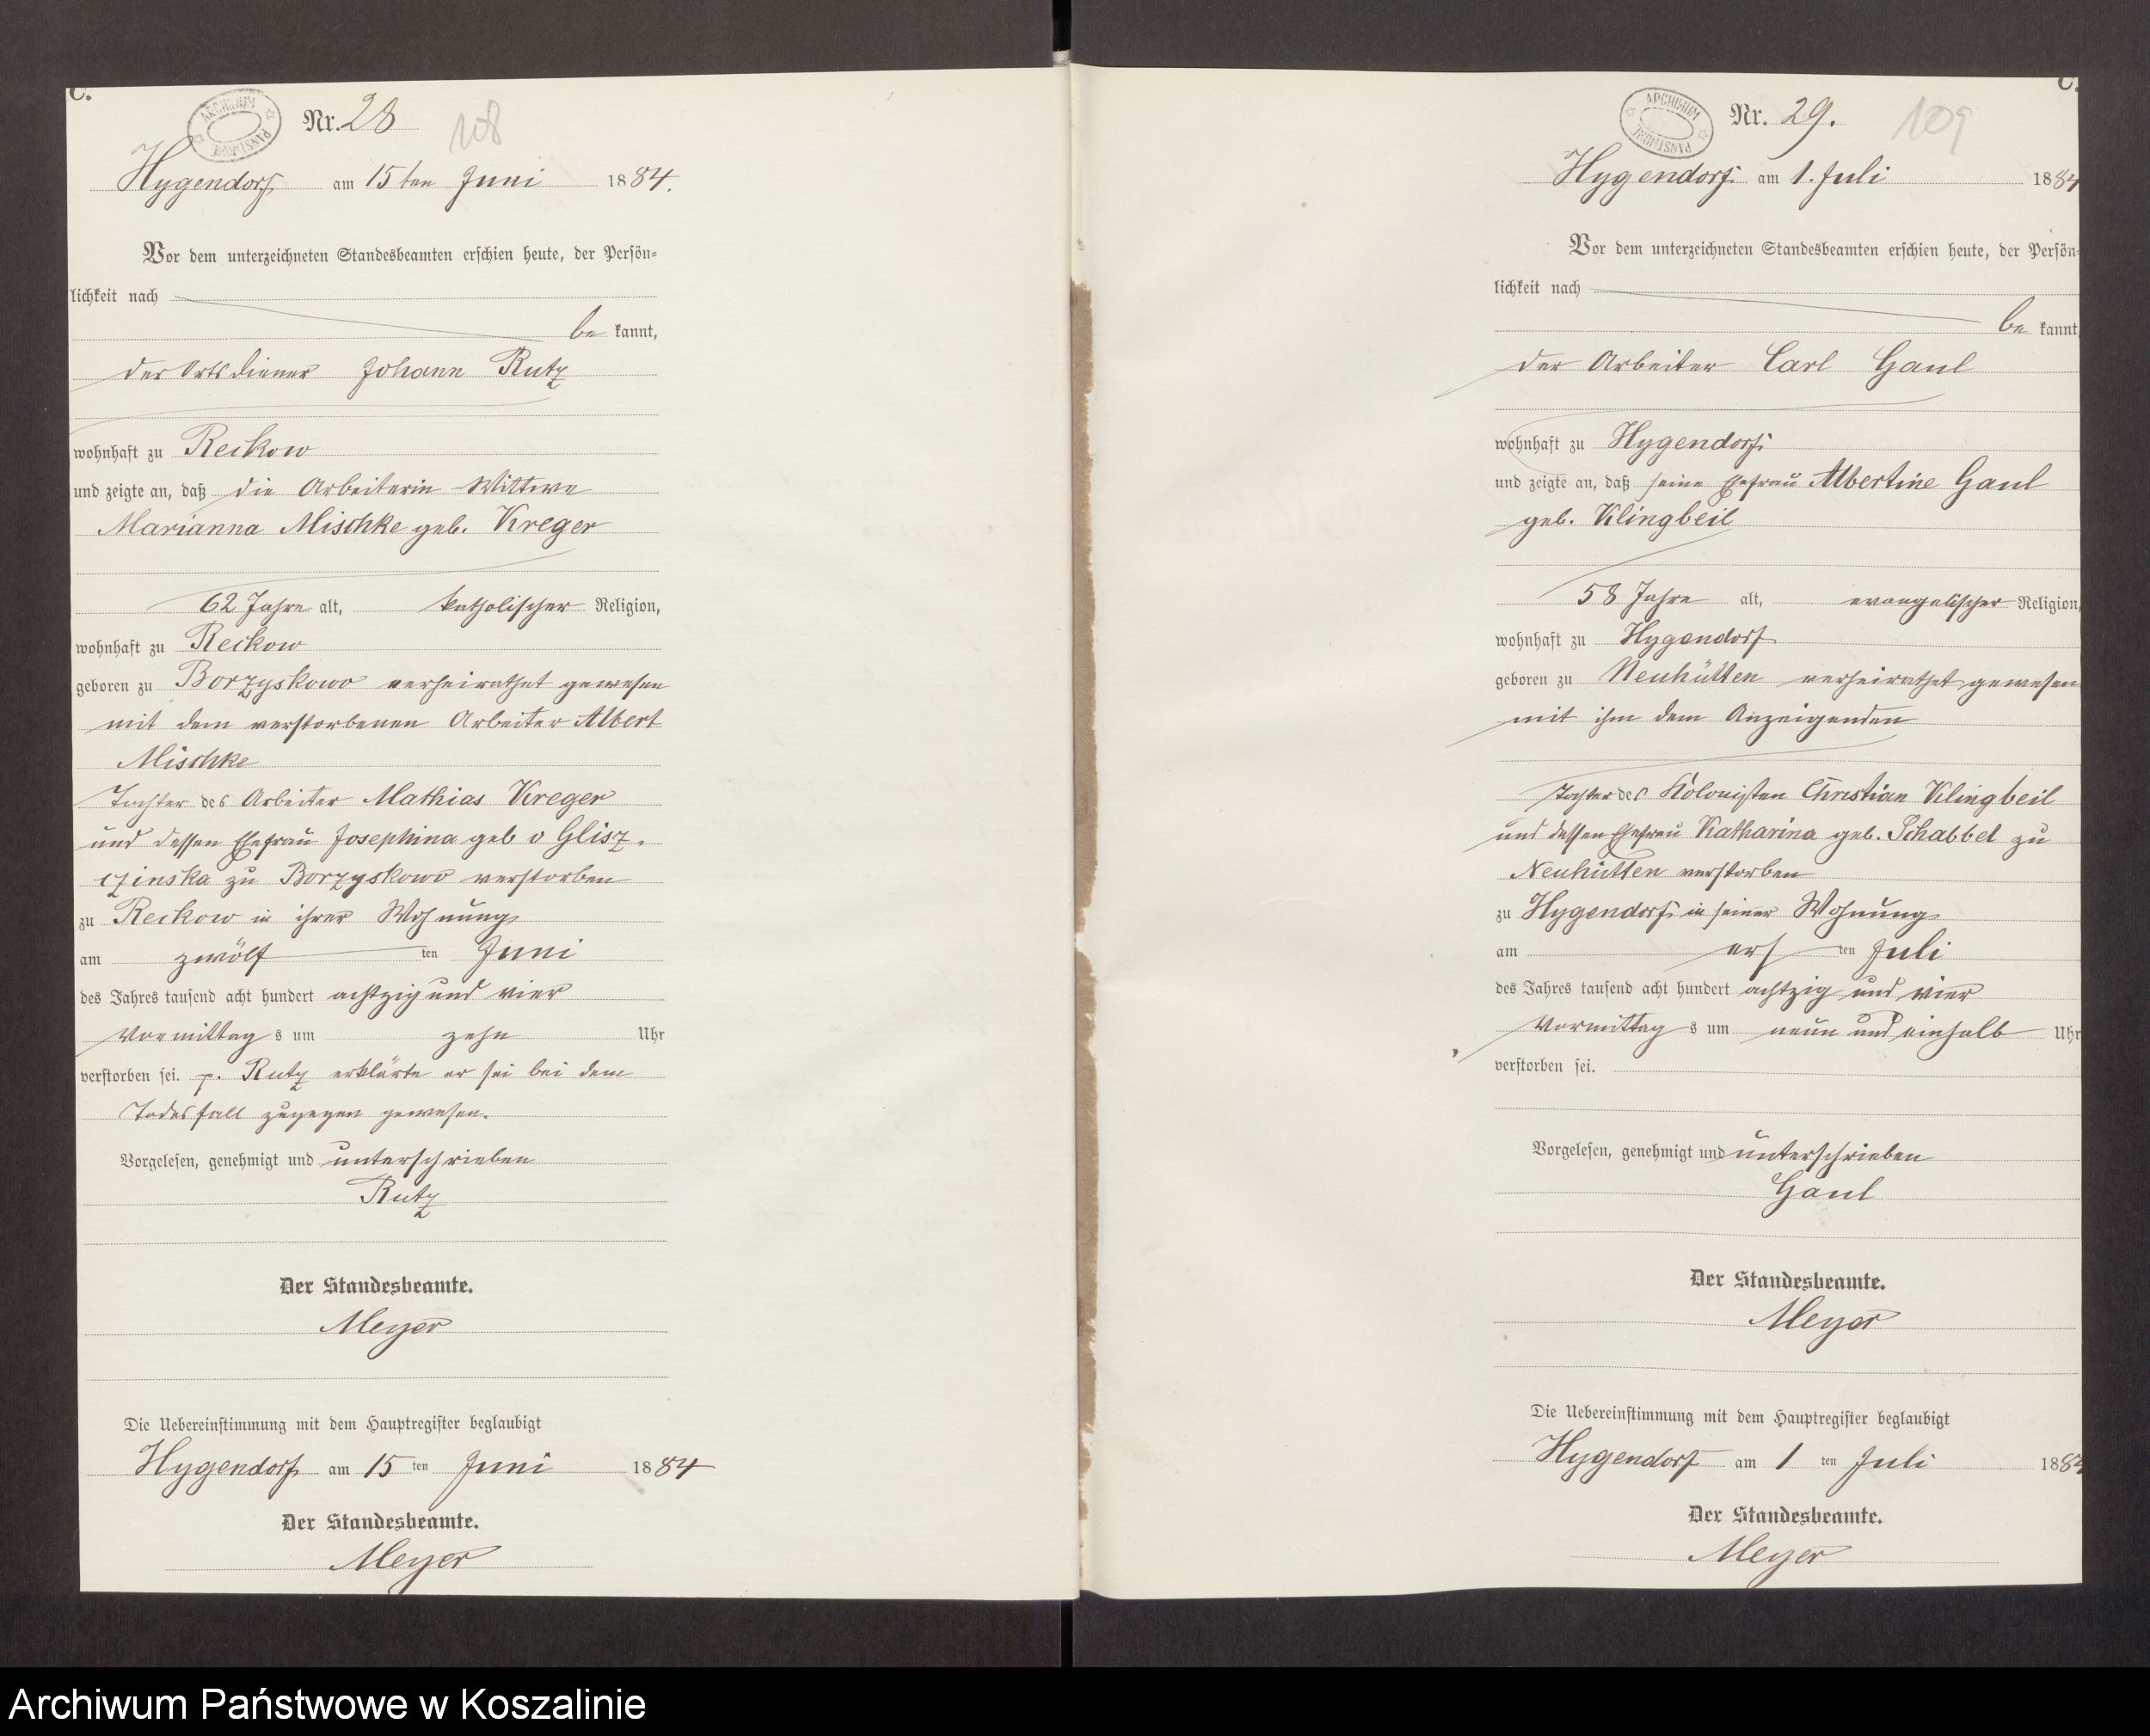 C.
ARCHIWUM PAŃSTWOWE
Nr. 28
108
Hygendorf am 15ten Juni 1884.
Vor dem unterzeichneten Standesbeamten erschien heute, der Persön-
lichkeit nach
be kannt,
der Ortsdiener Johann Rutz
wohnhaft zu Reckow
und zeigte an, daß die Arbeiterin Wittwe
Marianna Mischke geb. Kreger
62 Jahre alt, katholischer Religion,
wohnhaft zu Reckow
geboren zu Borzyskowo verheirathet gewesen
mit dem verstorbenen Arbeiter Albert
Mischke
Tochter des Arbeiter Mathias Kreger
und dessen Ehefrau Josephina geb v Glisz-
czinska zu Borzyskowo verstorben
zu Reckow in ihrer Wohnung
am zwölf ten Juni
des Jahres tausend acht hundert achtzig und vier
Vormittag s um zehn Uhr
verstorben sei. p. Rutz erklärte er sei bei dem
Todesfall zugegen gewesen.
Vorgelesen, genehmigt und unterschrieben
Rutz
Der Standesbeamte.
Meyer
Die Uebereinstimmung mit dem Hauptregister beglaubigt
Hygendorf am 15 ten Juni 1884
Der Standesbeamte.
Meyer
C.
ARCHIWUM PAŃSTWOWE
Nr. 29.
109
Hygendorf am 1. Juli 1884
Vor dem unterzeichneten Standesbeamten erschien heute, der Persön-
lichkeit nach
be kannt,
der Arbeiter Carl Gaul
wohnhaft zu Hygendorf
und zeigte an, daß seine Ehefrau Albertine Gaul
geb. Klingbeil
58 Jahre alt, evangelischer Religion,
wohnhaft zu Hygendorf
geboren zu Neuhütten verheirathet gewesen
mit ihm dem Anzeigenden
Tochter des Kolonisten Christian Klingbeil
und dessen Ehefrau Katharina geb. Schabbel zu
Neuhütten verstorben
zu Hygendorf in seiner Wohnung
am ers ten Juli
des Jahres tausend acht hundert achtzig und vier
Vormittag s um neun und einhalb Uhr
verstorben sei.
Vorgelesen, genehmigt und unterschrieben
Gaul
Der Standesbeamte.
Meyer
Die Uebereinstimmung mit dem Hauptregister beglaubigt
Hygendorf am 1 ten Juli 1884
Der Standesbeamte.
Meyer
Archiwum Państwowe w Koszalinie